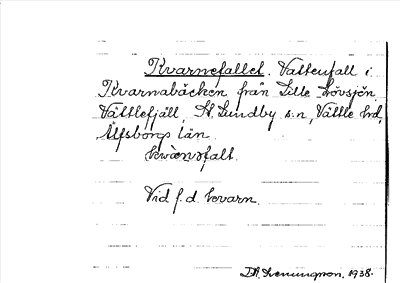 Kvarnefallet. Vattenfall i
Kvarnabäcken från Lille Lövsjön
Vättlefjäll, St. Lundby s:n, Vättle hd,
Älfsborgs län.
kwà:nəfalt.
Vid f.d. kvarn.
1938.